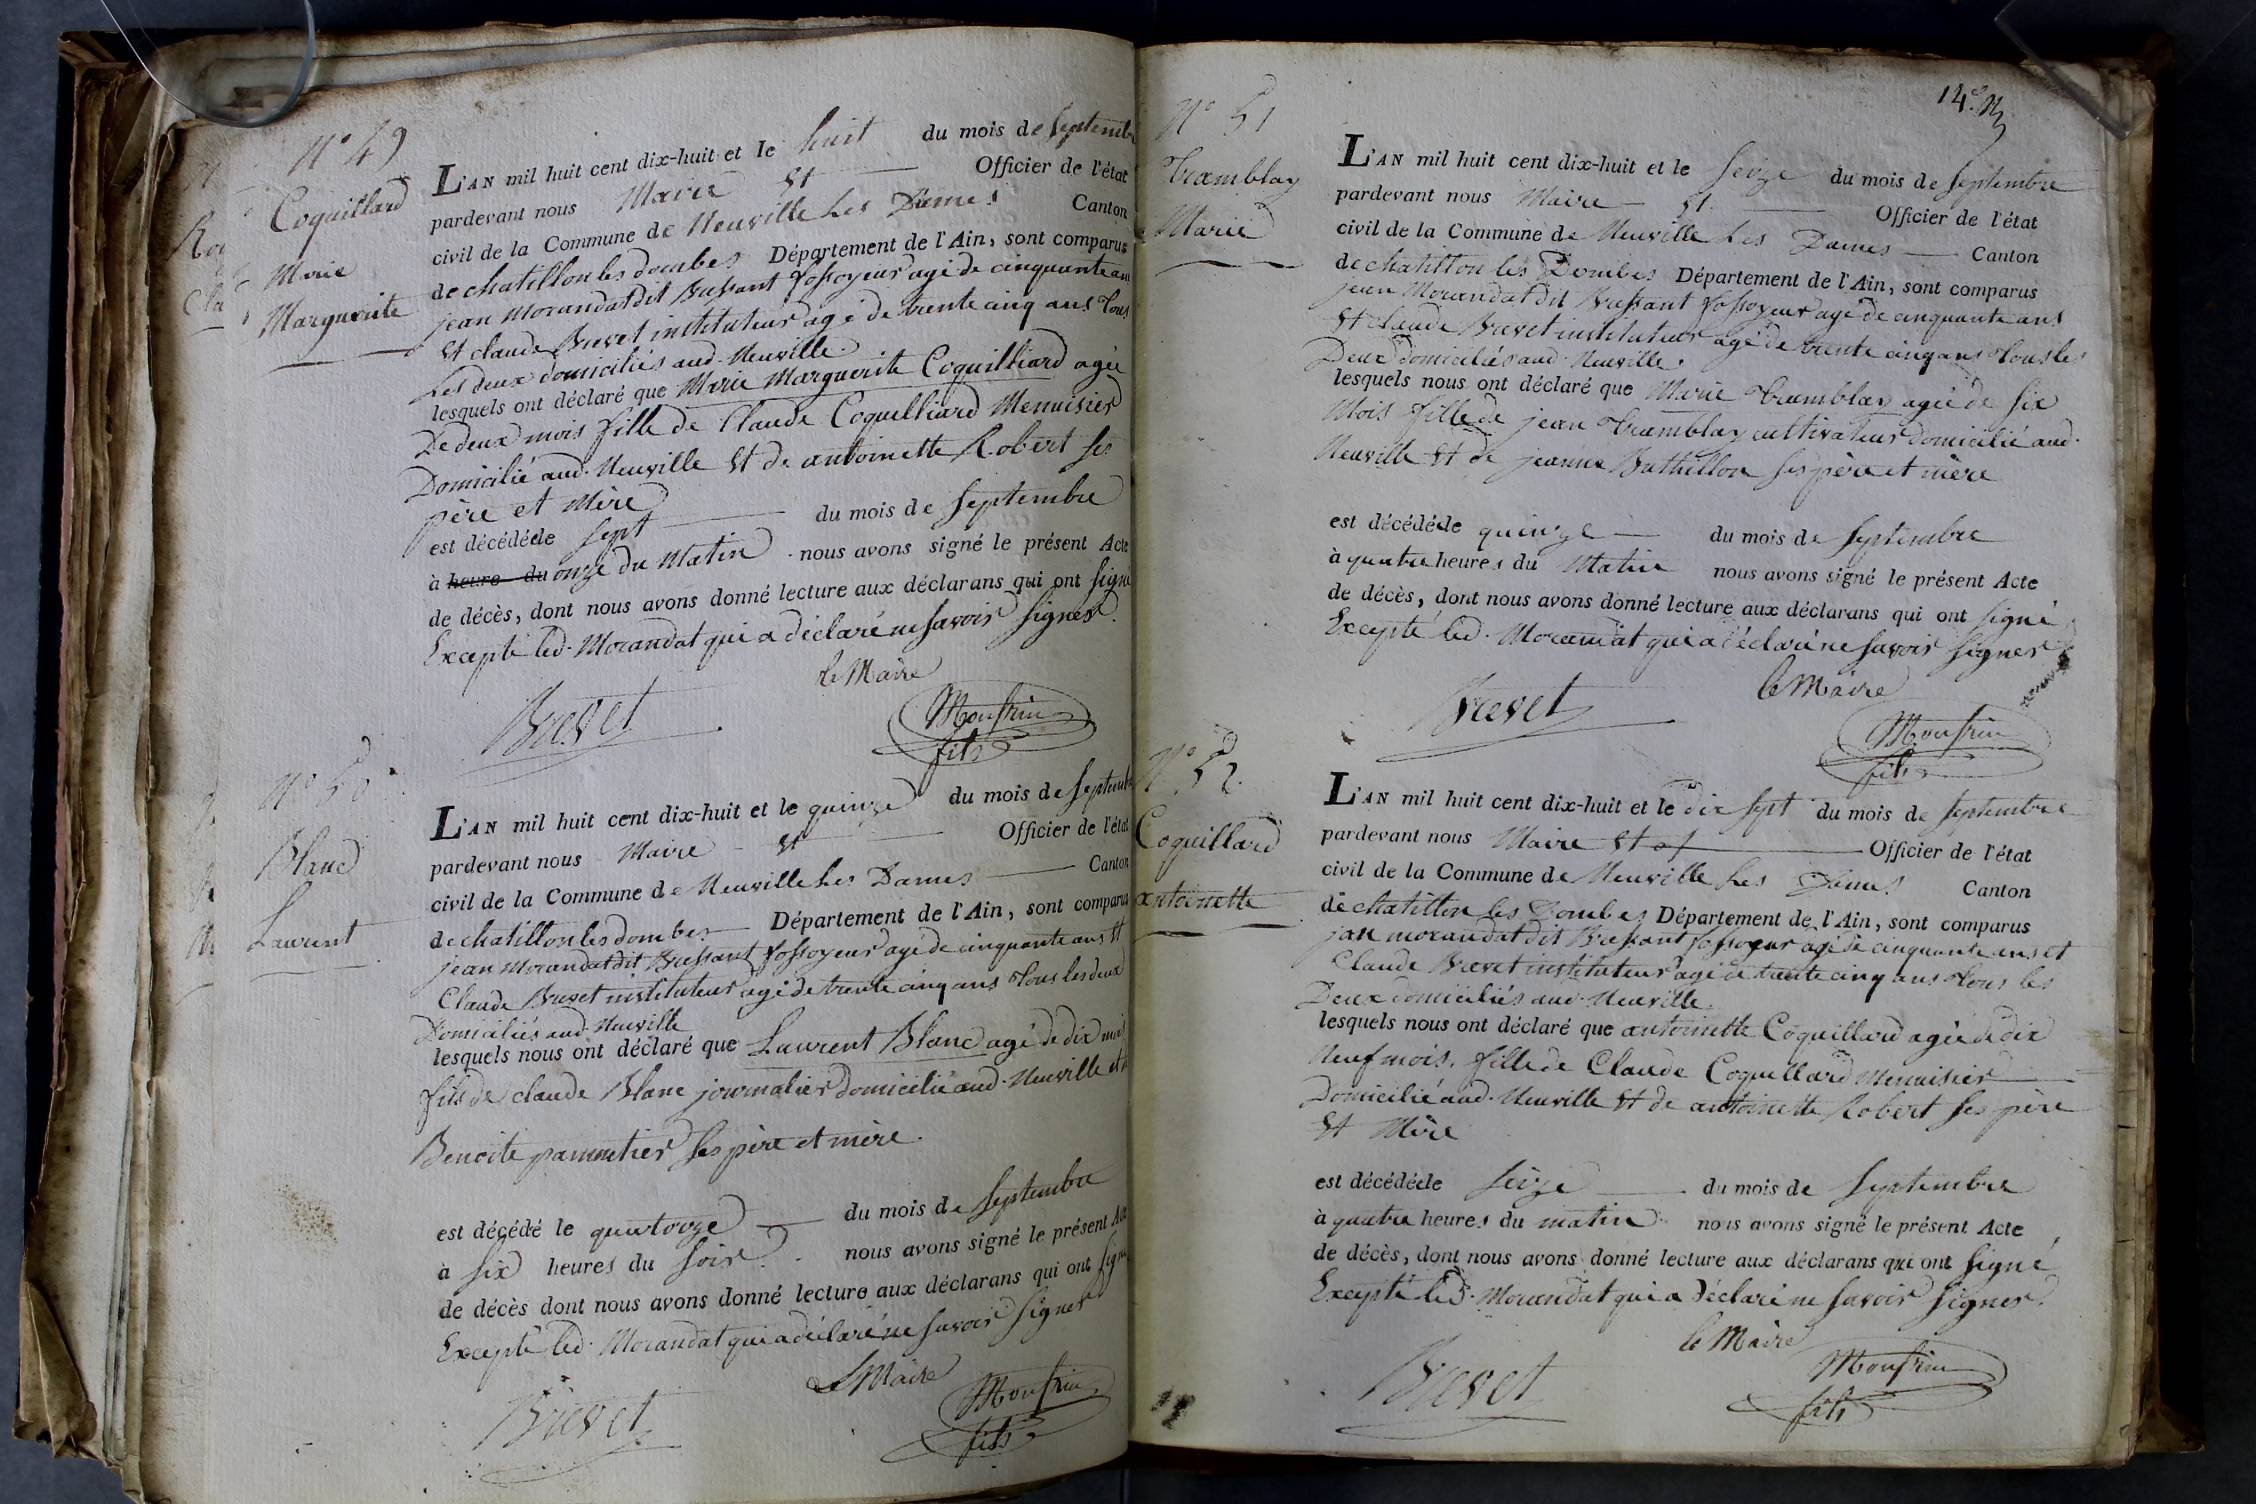 N° 49
Coquillard
Marie
Marguerite
L'AN mil huit cent dix-huit et le huit du mois de Septembre
pardevant nous Maire Et Officier de l'état
civil de la Commune de Neuville Les Dames Canton
de chatillon les dombes Département de l'Ain, sont comparus
jean Morandat dit Bressant fossoyeur agé de cinquante ans
Et claude Brevet instituteur agé de trente cinq ans Tous
Les deux domiciliés aud. Neuville.
lesquels ont déclaré que Marie Marguerite Coquilliard agée
De deux mois fille de Claude Coquilliard Menuisier
Domicilié aud. Neuville Et de antoinette Robert ses
père et Mère
est décédée le sept du mois de Septembre
à heure du onze du Matin nous avons signé le présent Acte
de décès, dont nous avons donné lecture aux déclarans qui ont signé
Excepté led. Morandat qui a déclaré ne savoir signer.
le Maire
Brevet
Monfrin
fils
N° 50
Blanc
Laurent
L'AN mil huit cent dix-huit et le quinze du mois de Septembre
pardevant nous Maire Et Officier de l'état
civil de la Commune de Neuville Les Dames Canton
de chatillon les dombes Département de l'Ain, sont comparus
jean Morandat dit Bressant fossoyeur agé de cinquante ans Et
Claude Brevet instituteur agé de trente cinq ans Tous les deux
Domiciliés aud. Neuville
lesquels nous ont déclaré que Laurent Blanc agé de dix mois
fils de claude Blanc journalier domicilié aud. Neuville et de
Benoite parmentier ses père et mère.
est décédé le quatorze du mois de Septembre
à Six heures du soir nous avons signé le présent Acte
de décès dont nous avons donné lecture aux déclarans qui ont signé
Excepté led. Morandat qui a déclaré ne savoir signer
le Maire
Brevet
Monfrin
fils
14e
N° 51
Tramblay
Marie
L'AN mil huit cent dix-huit et le Seize du mois de Septembre
pardevant nous Maire Et Officier de l'état
civil de la Commune de Neuville Les Dames Canton
de chatillon les Dombes Département de l'Ain, sont comparus
jean Morandat dit Bressant fossoyeur agé de cinquante ans
Et claude Brevet instituteur agé de trente cinq ans Tous les
Deux domiciliés aud. Neuville.
lesquels nous ont déclaré que Marie Tramblay agée de six
Mois fille de jean Tramblay cultivateur domicilié aud.
Neuville Et de jeanne Buthillon ses père et mère
est décédée le quinze du mois de Septembre
à quatre heures du Matin nous avons signé le présent Acte
de décès, dont nous avons donné lecture aux déclarans qui ont signé
Excepté led. Morandat qui a déclaré ne savoir signer
le Maire
Brevet
Monfrin
fils
N° 52.
Coquillard
antoinette
L'AN mil huit cent dix-huit et le dix sept du mois de Septembre
pardevant nous Maire Et Officier de l'état
civil de la Commune de Neuville Les Dames Canton
de chatillon les Dombes Département de l'Ain, sont comparus
jean morandat dit Bressant fossoyeur agé de cinquante ans et
Claude Brevet instituteur agé de trente cinq ans Tous les
Deux domiciliés aud. Neuville.
lesquels nous ont déclaré que antoinette Coquillard agée de dix
Neuf mois. fille de Claude Coquillard Menuisier
Domicilié aud. Neuville Et de antoinette Robert ses père
Et Mère
est décédée le Seize du mois de Septembre
à quatre heures du matin nous avons signé le présent Acte
de décès, dont nous avons donné lecture aux déclarans qui ont signé
Excepté led. Morandat qui a déclaré ne savoir signer.
le Maire
Brevet
Monfrin
fils